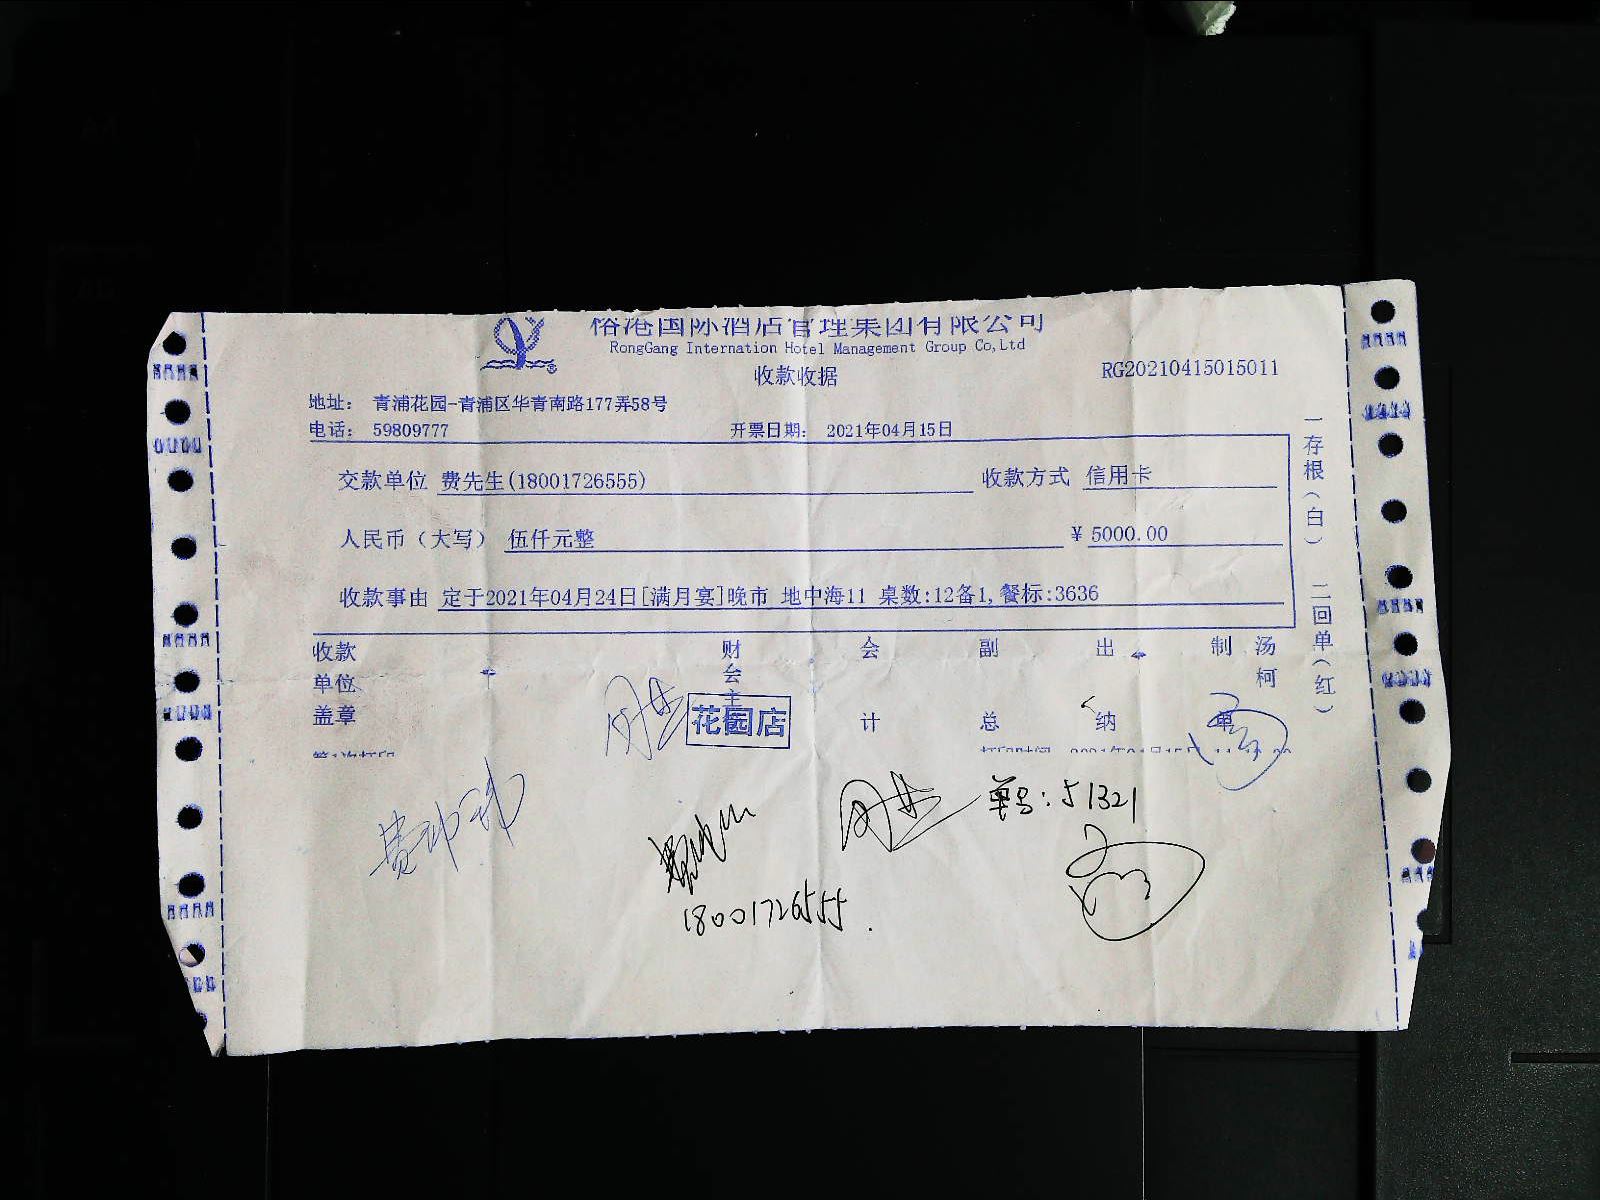 榕港国际酒店管理集团有限公司
RongGang Internation Hotel Management Group Co,Ltd
收款收据
RG20210415015011
地址： 青浦花园-青浦区华青南路177弄58号
电话： 59809777 开票日期： 2021年04月15日
交款单位 费先生(18001726555) 收款方式 信用卡
人民币（大写） 伍仟元整 ￥5000.00
收款事由 定于2021年04月24日[满月宴]晚市 地中海11 桌数:12备1,餐标:3636
一存根（白） 二回单（红）
收款单位盖章
财会主
会计
副总
出纳
制单
汤柯
花园店
第1次打印
打印时间 2021年04月15日
单号:51321
18001726555.